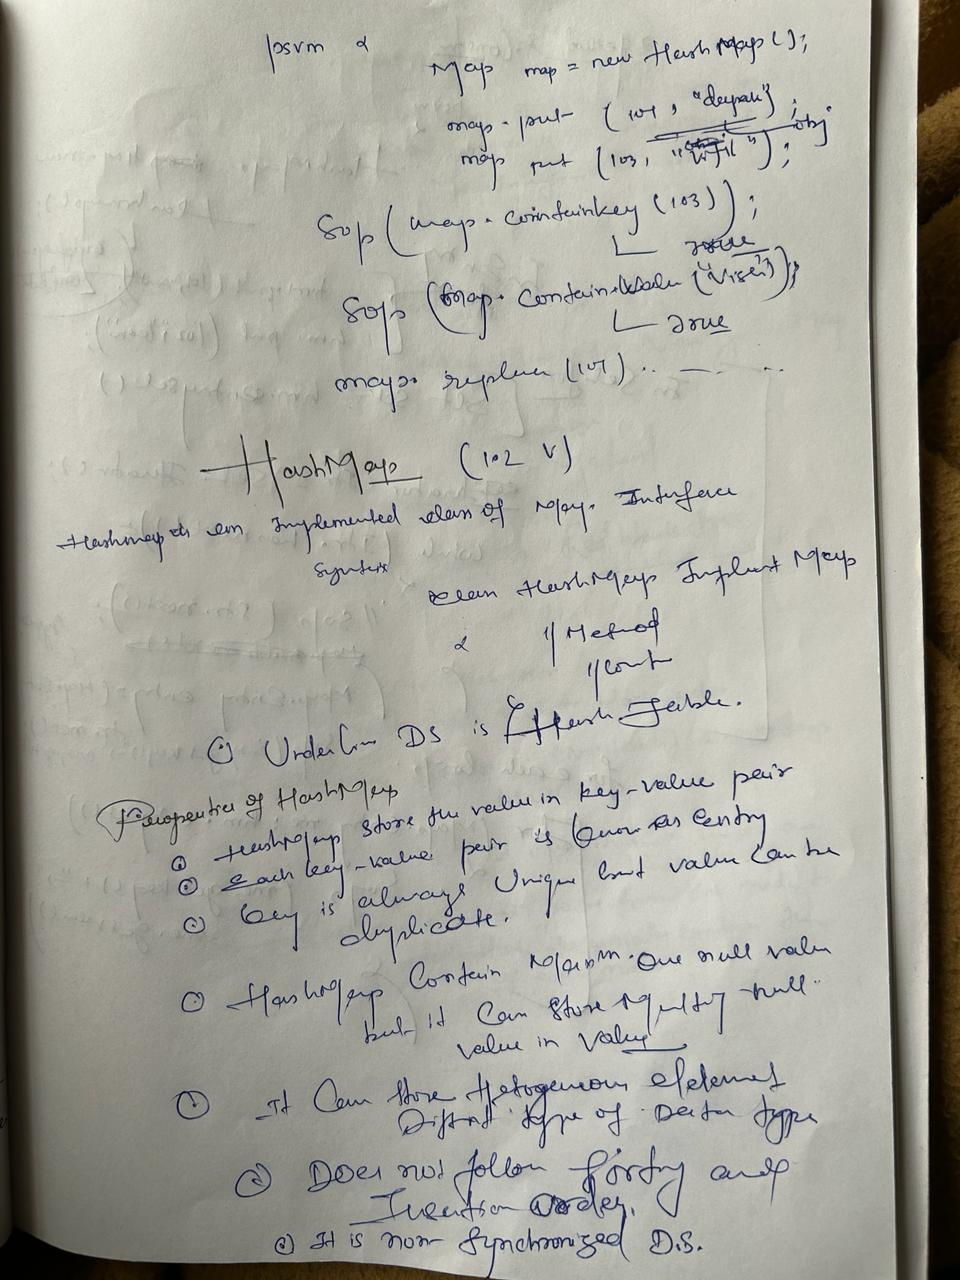 psvm {
Map map = new HashMap();
map.put (101, "deepak");
map put (103, "    "); obj
Sop (map.containkey (103));
true
Sop (map.contain      ("      "));
true
map. replace (101) .. — ..
HashMap (102 V)
Hashmap is an Implemented class of Map. Interface
Syntax
class HashMap Implement Map
{ // Method
// Cont
Underline DS is Hash Table.
Properties of HashMap
HashMap store the value in key-value pair
Each key-value pair is known as Entry
Key is always Unique but value can be
duplicate.
HashMap Contain         One null value
but it can store         null
value in value
It can store         element
        type of Data type
Does not follow         and
Insertion order.
It is non Synchronized D.S.